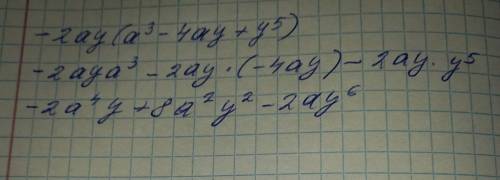 -2ay(a³-4ay+y⁵)
-2aya³-2ay·(-4ay)-2ay·y⁵
-2a⁴y+8a²y²-2ay⁶